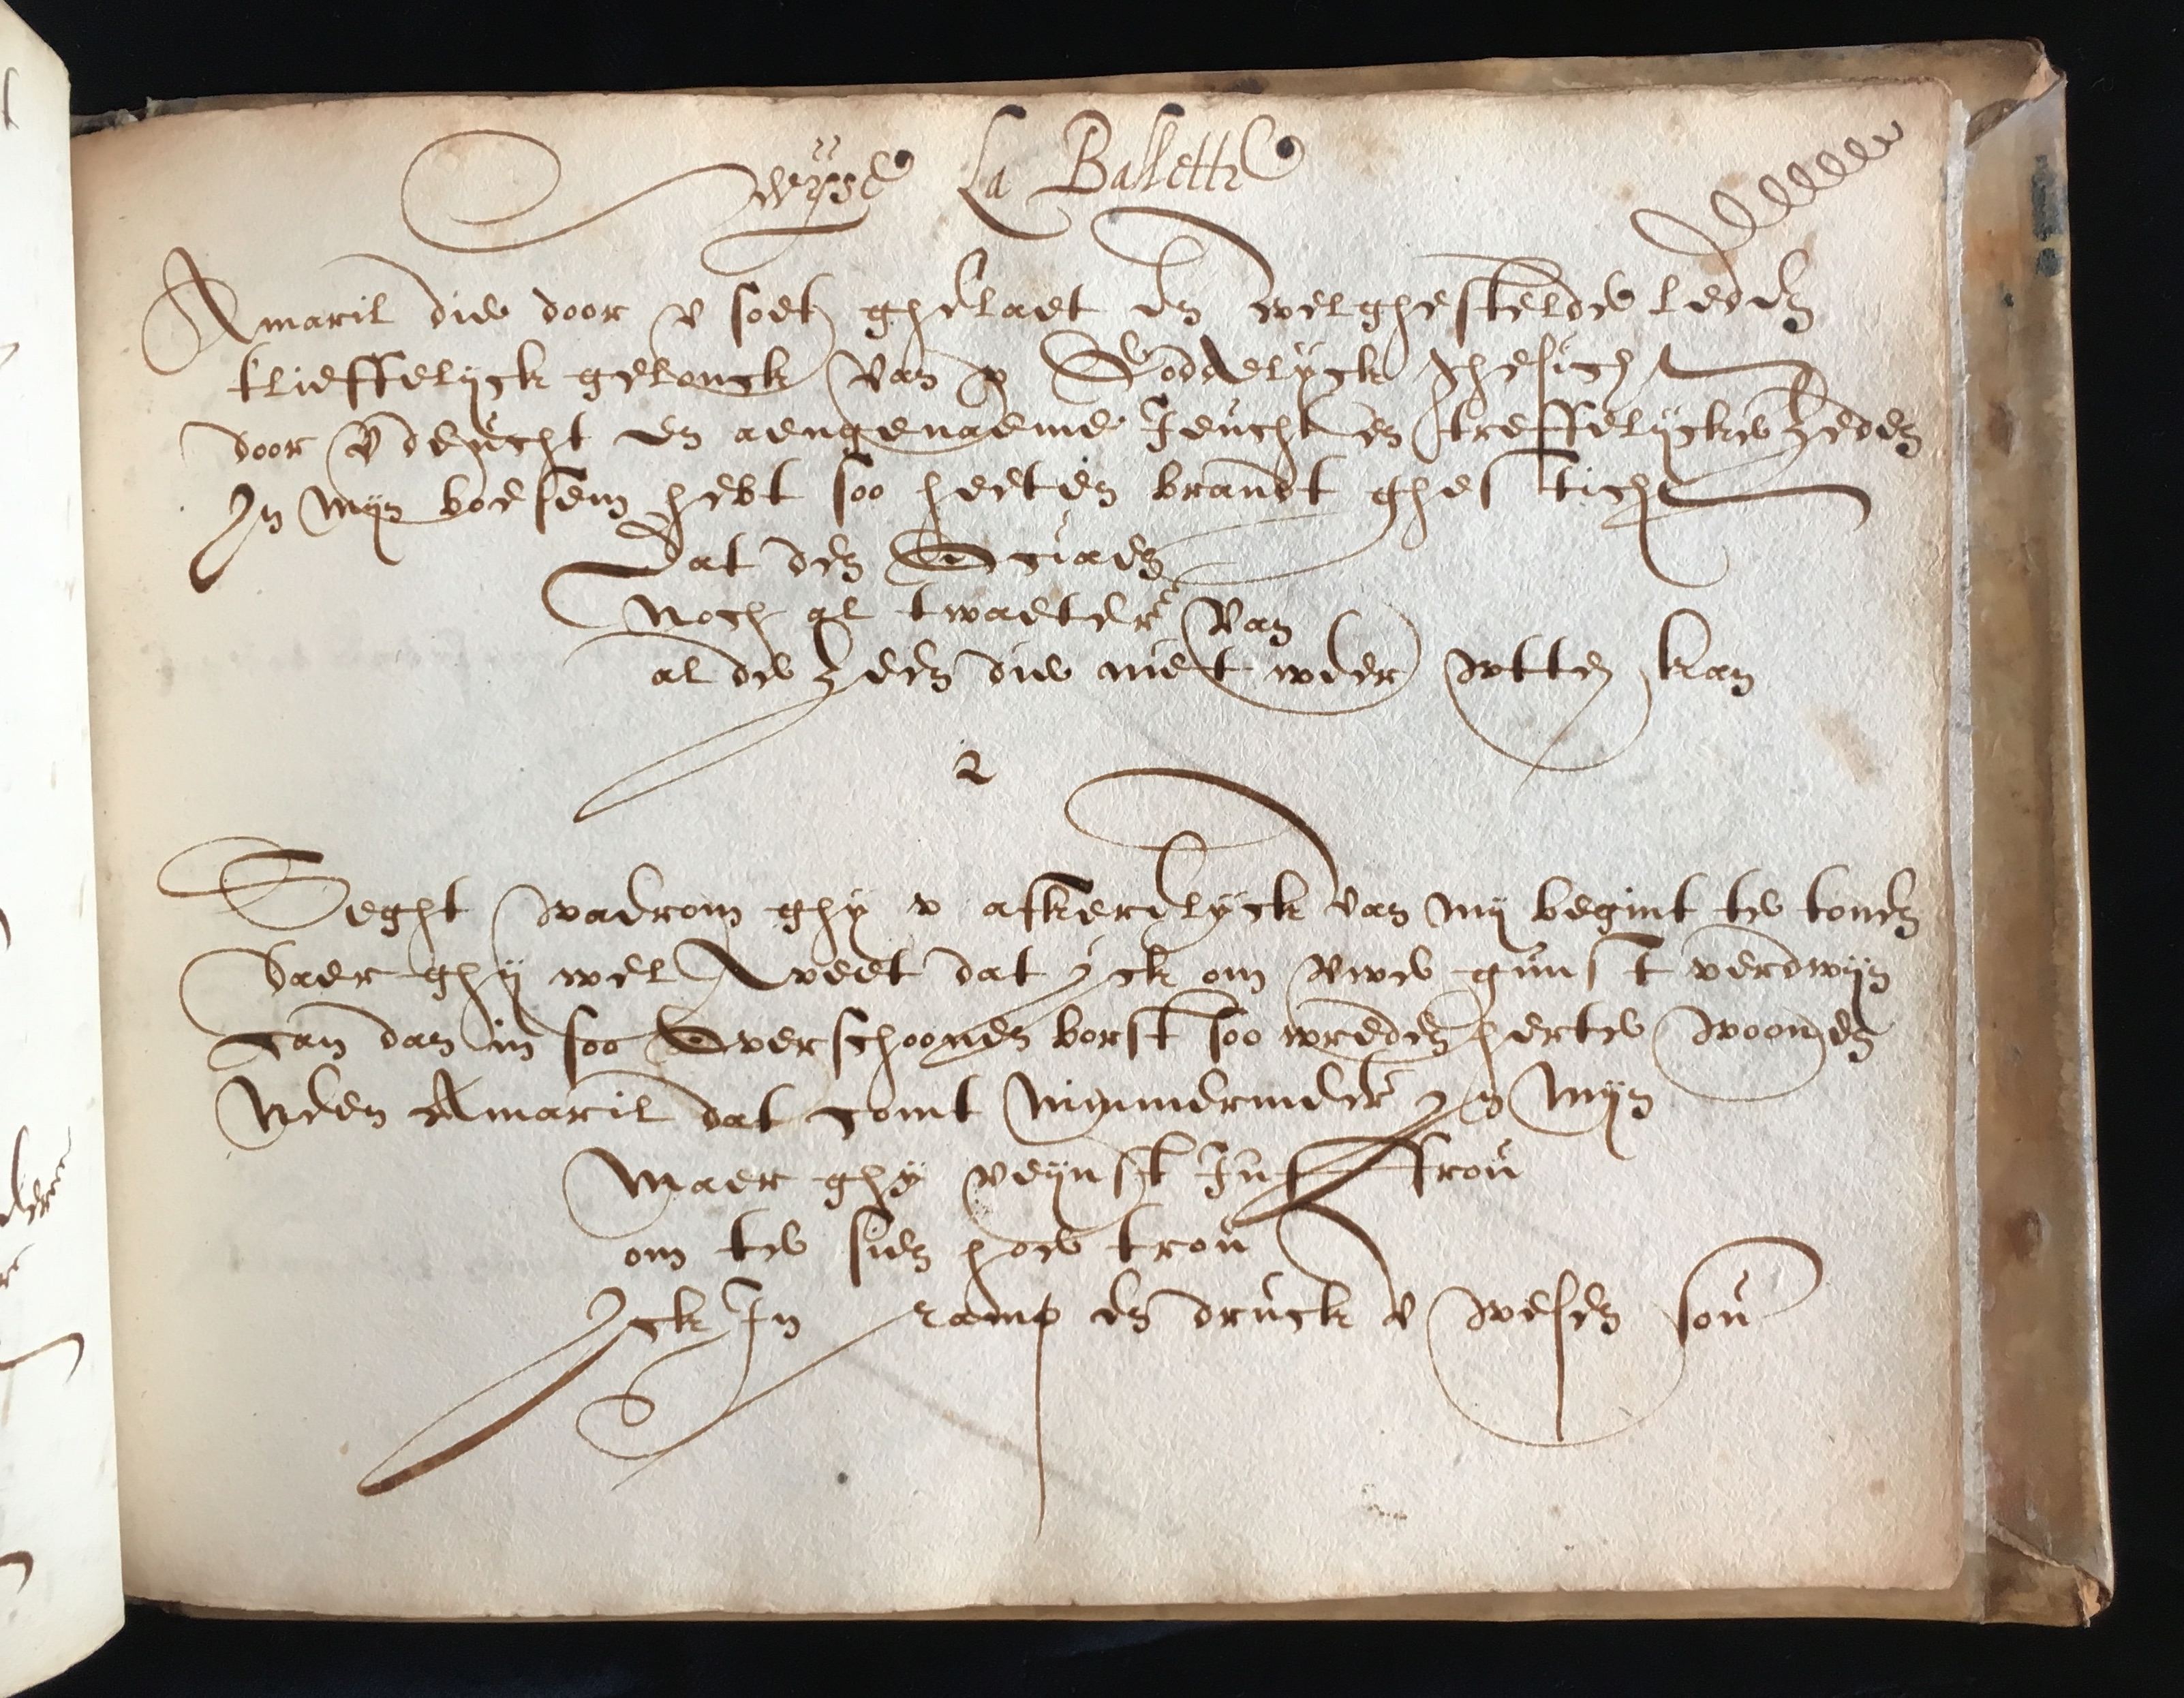 wyse La Ballette
Amaril die door v soet ghelaet en welghestelde leden
tlieffelyck gelonck van v Goddelyck ghesicht
door v deucht en aengenaeme Jeucht en treffelycke zeden
In myn boesem hebt soo heeten brandt ghesticht
Dat den Ociaen
noch al twaeter van
al de zeen die niet weer wtten kan
2
Seght waerom ghy v afkerelyck van my begint te tonen
Daer ghy wel weet dat yck om vwe gunst verdwyn
Can dan in soo Overschoonen borst soo wreden herte woonen
Neen Amaril dat comt nimmermeer In myn
maer ghy veynst Juffrou
om te sien hoe trou
Ick In ramp en druck v wesen sou